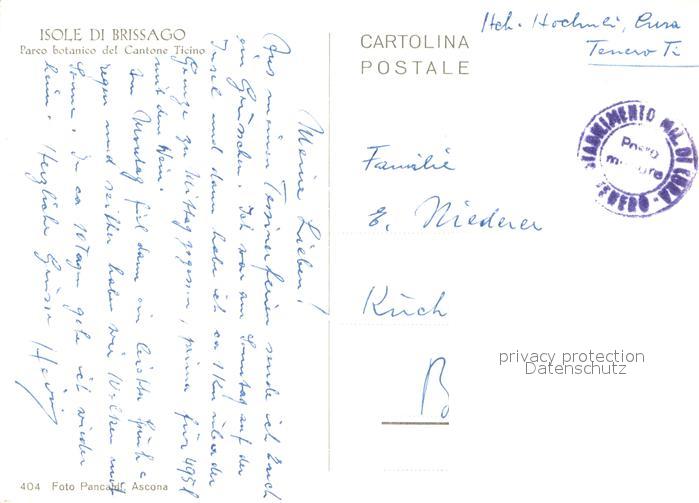 ISOLE DI BRISSAGO
Parco botanico del Cantone Ticino
CARTOLINA
POSTALE
Hch. Hochuli, Cura
Tenero Ti
STABILIMENTO MIL. DI CURA
TENERO
Posta
militare
Meine Lieben!
Aus meinen Tessinerferien sende ich Euch
ein Grüsschen. Ich war am Sonntag auf der
Insel und dann habe ich ca 1 Km über der
Grenze zu Mittag gegessen, prima für
mit dem Wein!
Am Montag fiel dann ein leichter
regen und seither haben wir Wolken und
Sonne. In ca 10 Tagen gehe ich wieder
heim. Herzliche Grüsse
Familie
E. Niederer
B
privacy protection
Datenschutz
404 Foto Pancaldi, Ascona